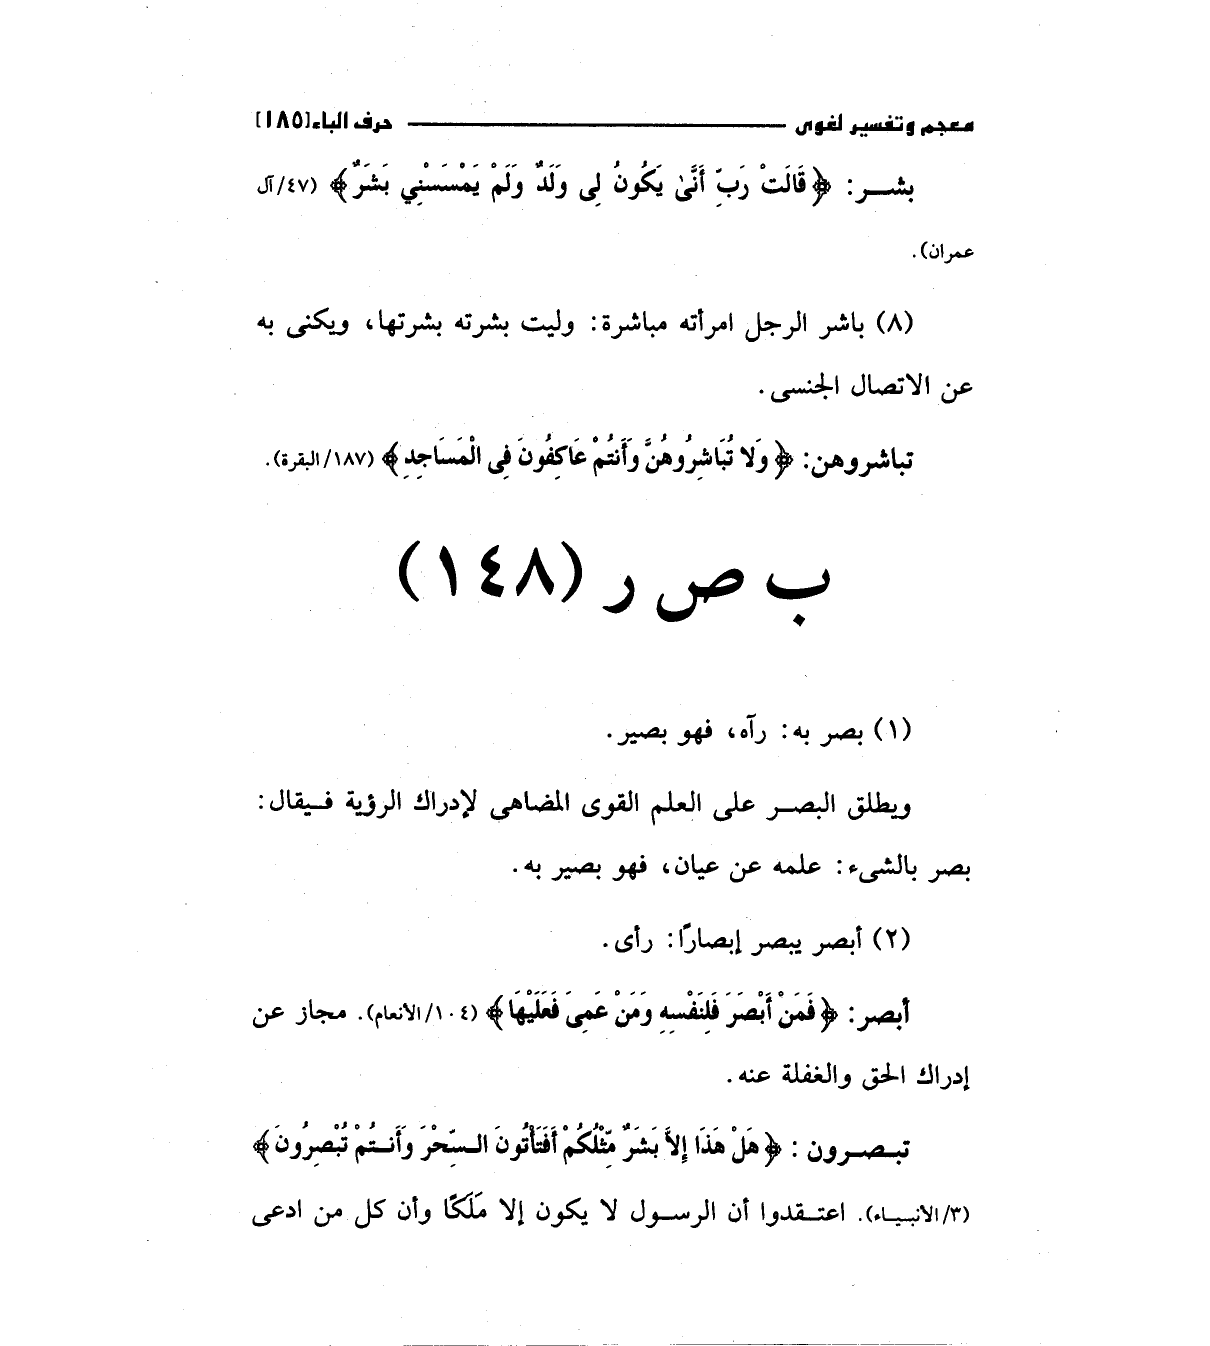 معجم وتفسير لغوى ــــــــــــ حرف الباء [١٨٥]
بشـــر: ﴿قَالَتْ رَبِّ أَنَّىٰ يَكُونُ لِى وَلَدٌ وَلَمْ يَمْسَسْنِي بَشَرٌ﴾ (٤٧/آل
عمران).
(٨) باشر الرجل امرأته مباشرة: وليت بشرته بشرتها، ويكنى به
عن الاتصال الجنسى.
تباشروهن: ﴿وَلا تُبَاشِرُوهُنَّ وَأَنتُمْ عَاكِفُونَ فِى الْمَسَاجِدِ﴾ (١٨٧/البقرة).
ب ص ر (١٤٨)
(١) بصر به: رآه، فهو بصير.
ويطلق البصــر على العلم القوى المضاهى لإدراك الرؤية فــيقال:
بصر بالشىء: علمه عن عيان، فهو بصير به.
(٢) أبصر يبصر إبصارًا: رأى.
أبصر: ﴿فَمَنْ أَبْصَرَ فَلِنَفْسِهِ وَمَنْ عَمِىَ فَعَلَيْهَا﴾ (١٠٤/الأنعام). مجاز عن
إدراك الحق والغفلة عنه.
تبـصـرون: ﴿هَلْ هَذَا إِلاَّ بَشَرٌ مِّثْلُكُمْ أَفَتَأْتُونَ الـسِّحْرَ وَأَنـتُمْ تُبْصِرُونَ﴾
(٣/الأنبـيـاء). اعتــقدوا أن الرســول لا يكون إلا مَلَكًا وأن كل من ادعى